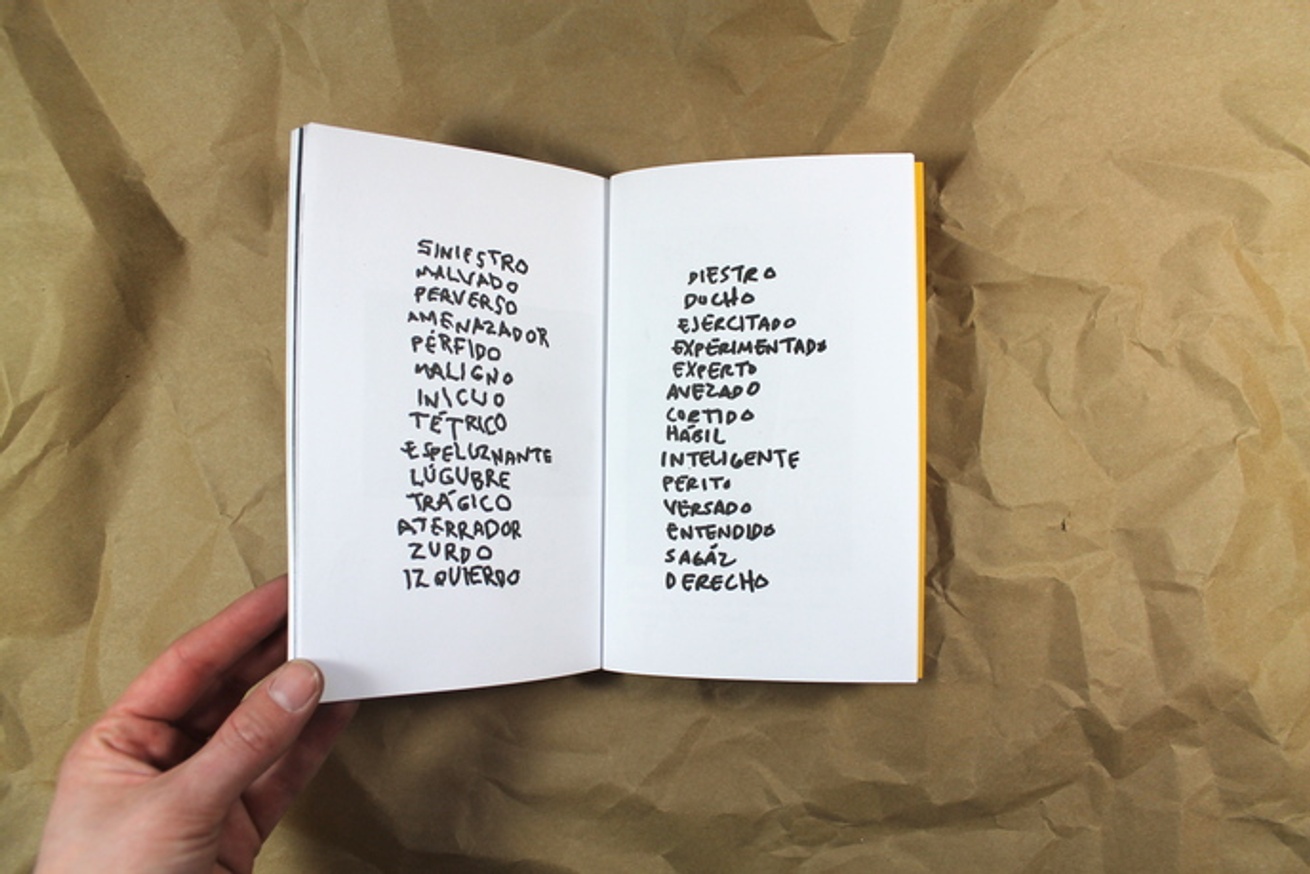 SINIESTRO
MALVADO
PERVERSO
AMENAZADOR
PÉRFIDO
MALIGNO
INICUO
TÉTRICO
ESPELUZNANTE
LÚGUBRE
TRÁGICO
ATERRADOR
ZURDO
IZQUIERDO
DIESTRO
DUCHO
EJERCITADO
EXPERIMENTADO
EXPERTO
AVEZADO
CORTIDO
HÁBIL
INTELIGENTE
PERITO
VERSADO
ENTENDIDO
SAGÁZ
DERECHO